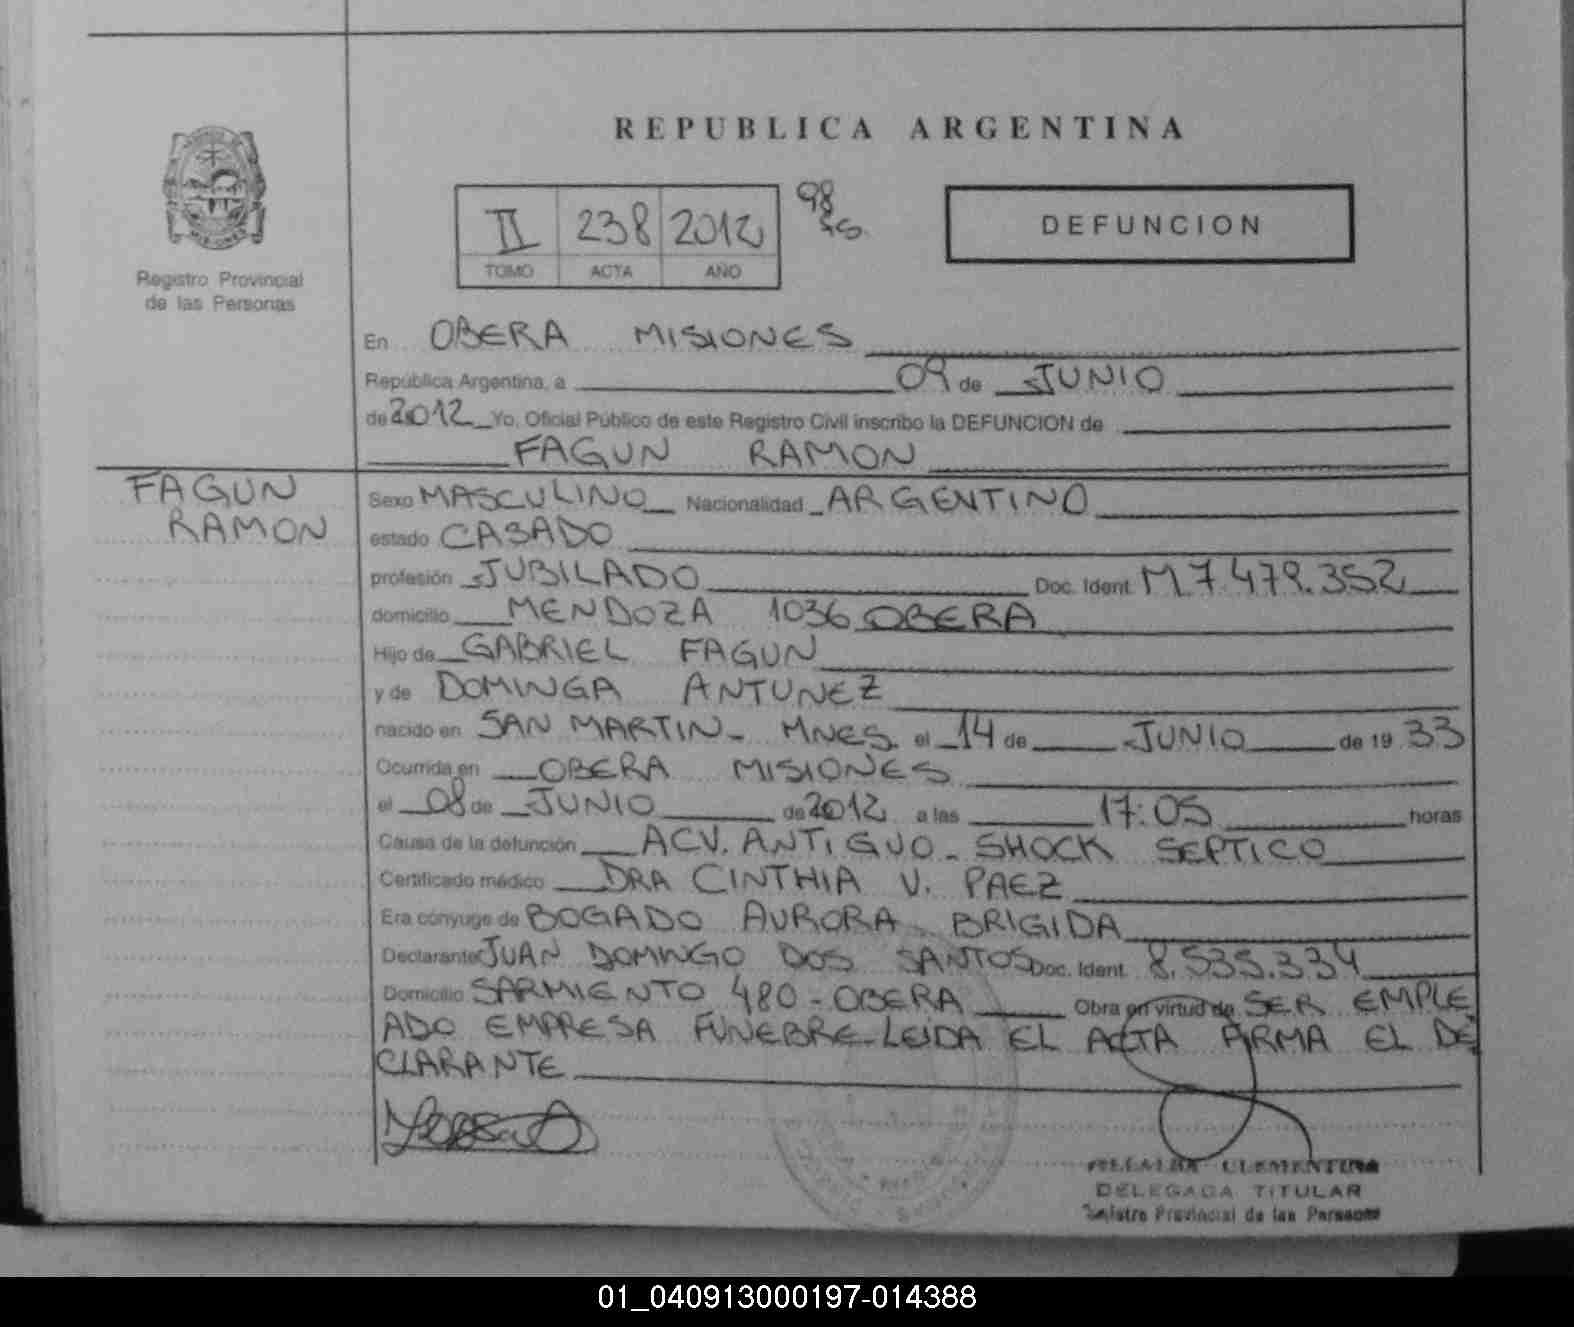 REPUBLICA ARGENTINA
II 238 2012 98
TOMO ACTA AÑO
DEFUNCION
Registro Provincial
de las Personas
En OBERA MISIONES
República Argentina, a 09 de JUNIO
de 2012 Yo, Oficial Público de este Registro Civil inscribo la DEFUNCION de
FAGUN RAMON
FAGUN
RAMON
Sexo MASCULINO Nacionalidad ARGENTINO
estado CASADO
profesión JUBILADO Doc. Ident. M 7.479.352
domicilio MENDOZA 1036 OBERA
Hijo de GABRIEL FAGUN
y de DOMINGA ANTUNEZ
nacido en SAN MARTIN - MNES. el 14 de JUNIO de 1933
Ocurrida en OBERA MISIONES
el 08 de JUNIO de 2012 a las 17:05 horas
Causa de la defunción ACV. ANTIGUO - SHOCK SEPTICO
Certificado médico DRA CINTHIA V. PAEZ
Era cónyuge de BOGADO AURORA BRIGIDA
Declarante JUAN DOMINGO DOS SANTOS Doc. Ident. 8.535.334
Domicilio SARMIENTO 480 - OBERA Obra en virtud de SER EMPLE
ADO EMPRESA FUNEBRE - LEIDA EL ACTA FIRMA EL DE
CLARANTE
CLEMENTINA
DELEGADA TITULAR
Registro Provincial de las Personas
01_040913000197-014388